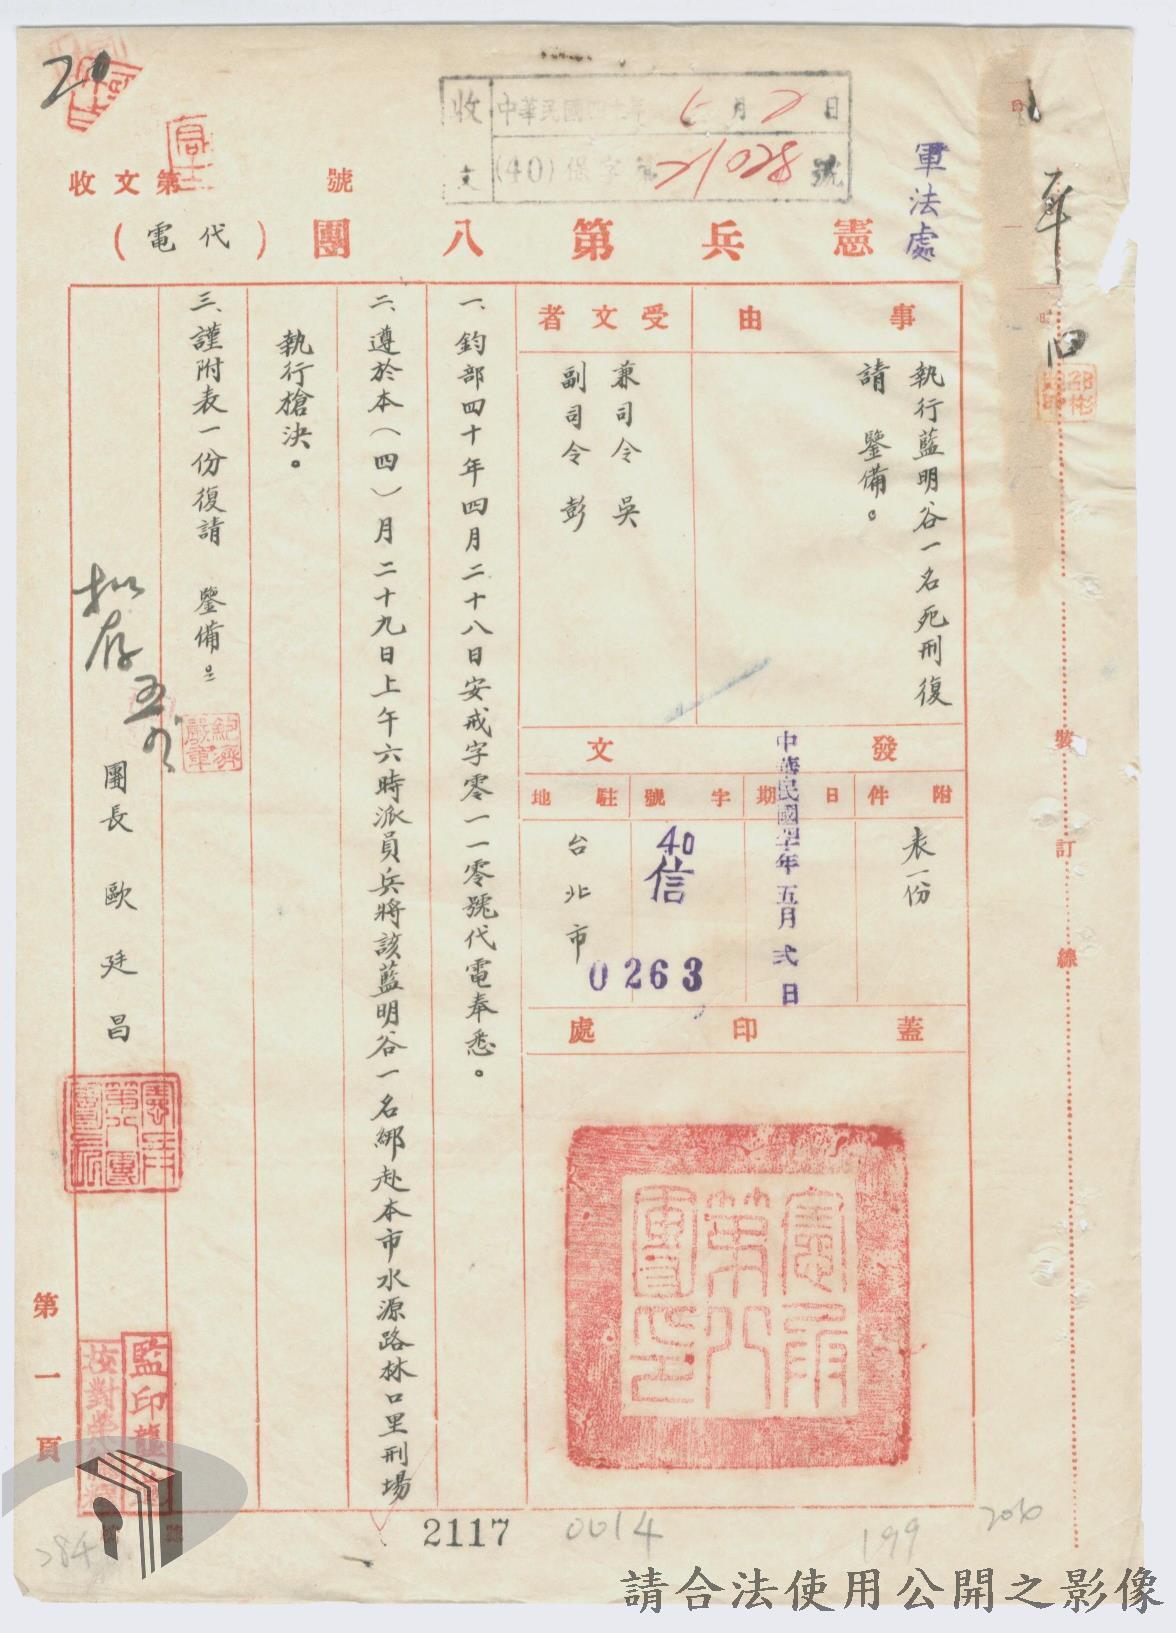 軍法處
收文
中華民國四十年5月2日
(40)保字第
號
收文第
號
憲兵第八團(代電)
事由
執行藍明谷一名死刑復
請 鑒備。
受文者
兼司令 吳
副司令 彭
發文
附件
表一份
日期
中華民國四十年五月弍日
字號
40
信
0263
駐地
台北市
蓋印處
憲兵第八團印
一、鈞部四十年四月二十八日安戒字零一一零號代電奉悉。
二、遵於本(四)月二十九日上午六時派員兵將該藍明谷一名綁赴本市水源路林口里刑場
執行槍決。
三、謹附表一份復請 鑒備
團長 歐廷昌
擬存
監印
校對
第一頁
裝
訂
線
2117
0014
199
206
請合法使用公開之影像